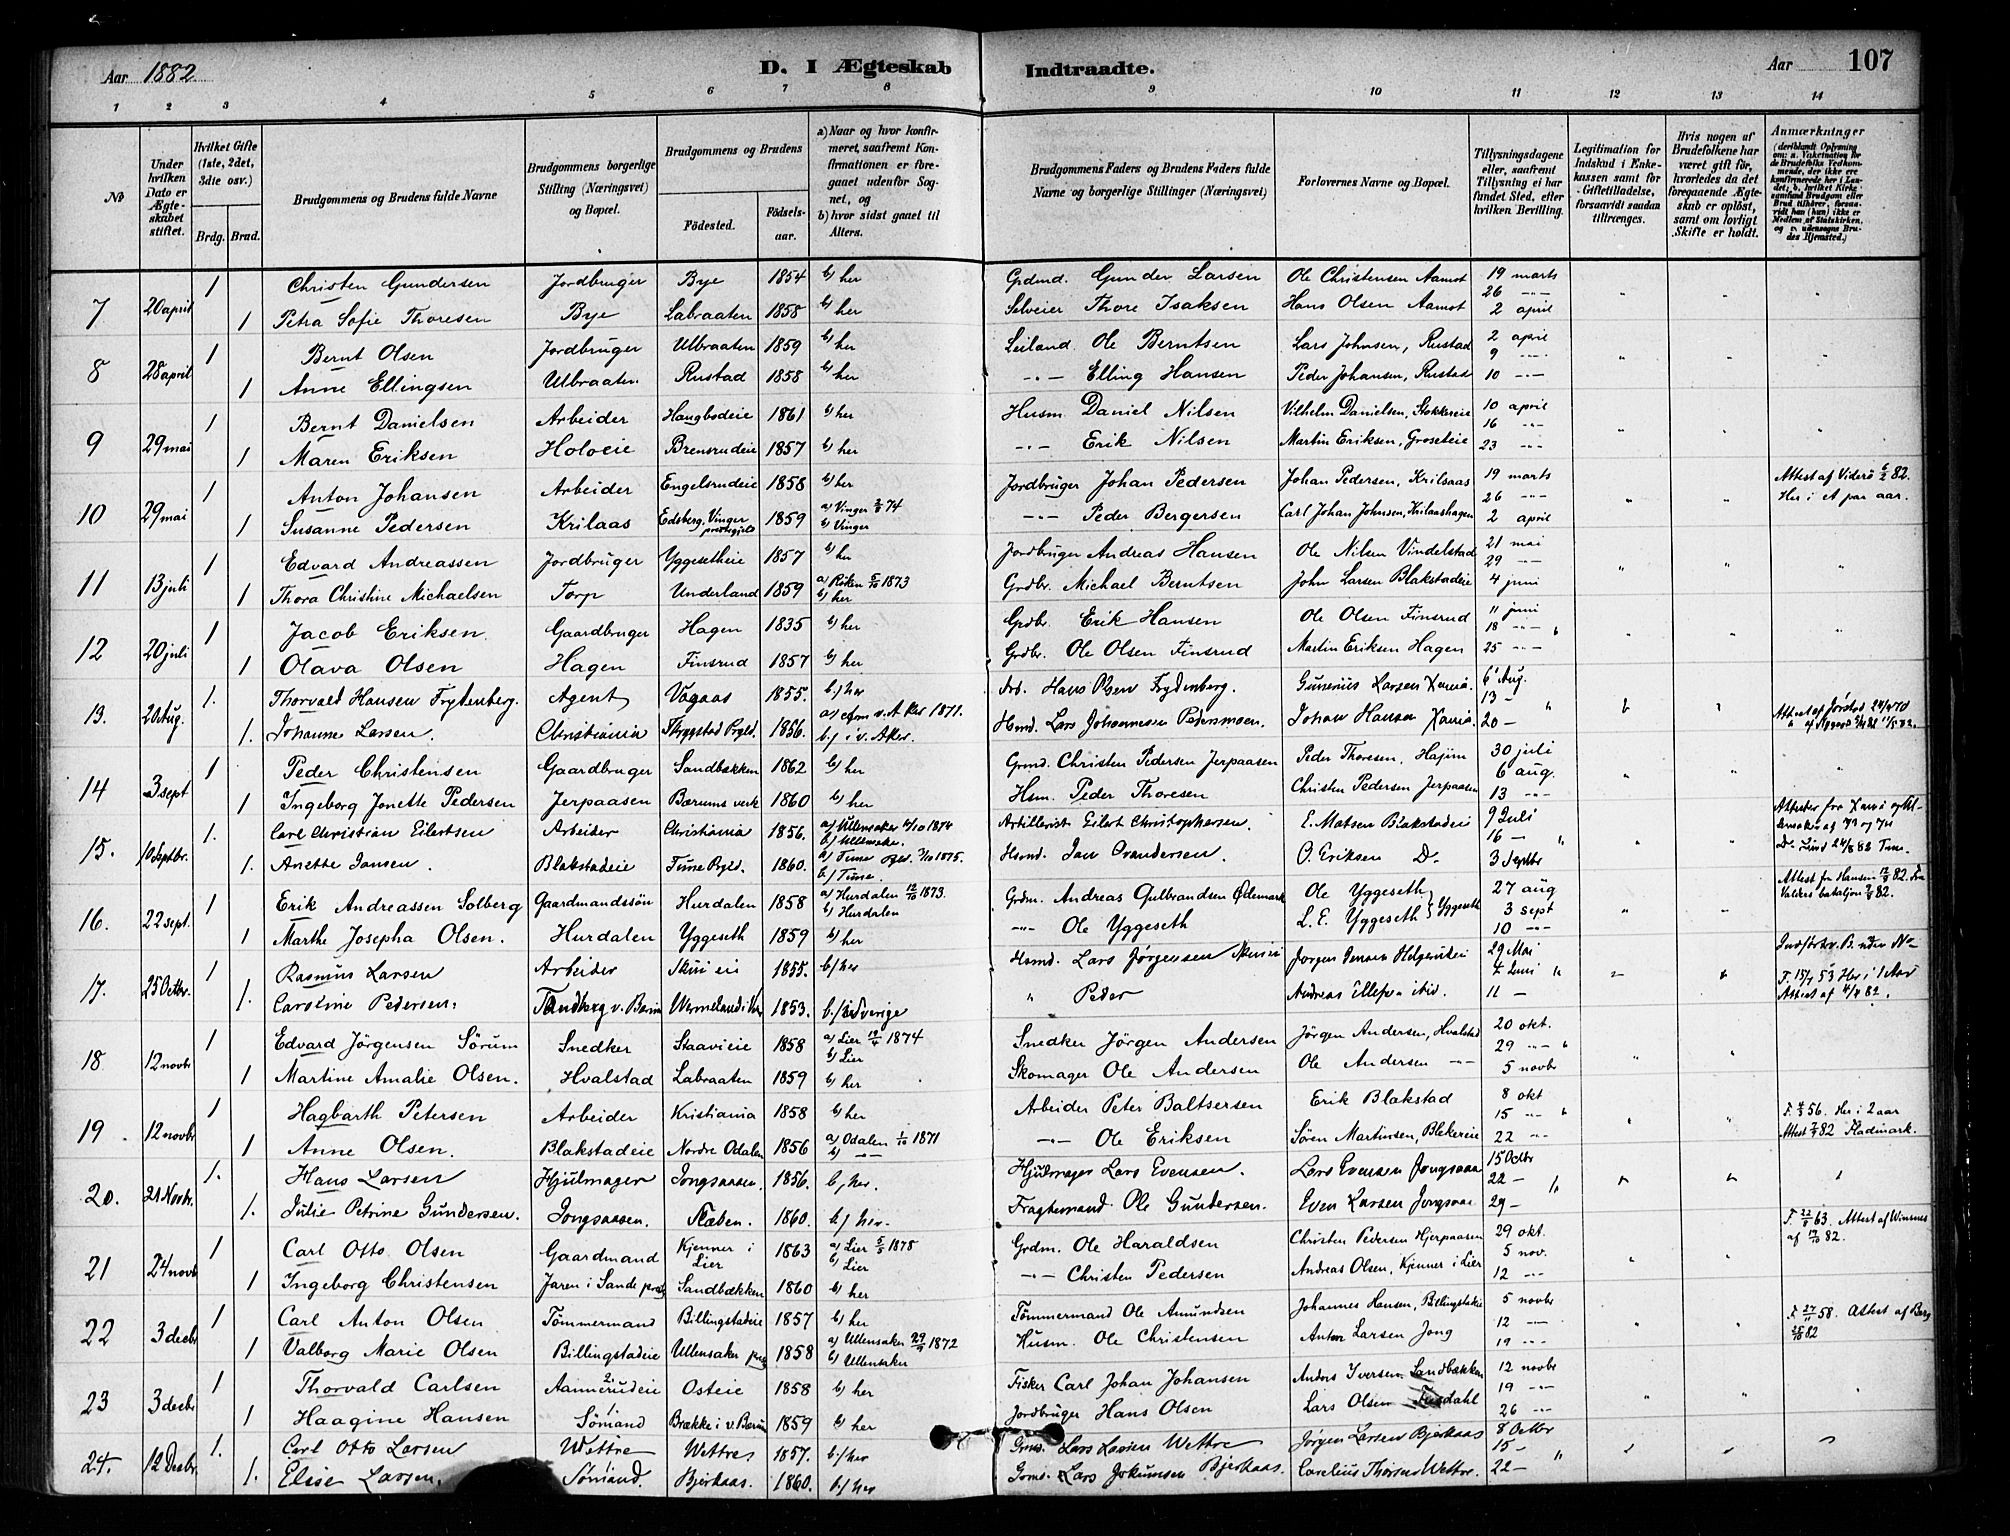 Aar 1882 D. I Ægteskab Indtraadte. Aar 107
1 2 3 4 5 6 7 8 9 10 11 12 13 14
No
Under hvilken Dato er Ægteskabet stiftet.
Hvilket Gifte (1ste, 2det, 3die osv.)
Brdg. Brud.
Brudgommens og Brudens fulde Navne
Brudgommens borgerlige Stilling (Næringsvei) og Bopæl.
Brudgommens og Brudens
Fødested. Fødselsaar.
a) Naar og hvor konfirmeret, saafremt Konfirmationen er foregaaet udenfor Sognet, og
b) hvor sidst gaaet til Alters.
Brudgommens Faders og Brudens Faders fulde Navne og borgerlige Stillinger (Næringsvei)
Forlovernes Navne og Bopæl.
Tillysningsdagene eller, saafremt Tillysning ei har fundet Sted, efter hvilken Bevilling.
Legitimation for Indskud i Enkekassen samt for Giftetilladelse, forsaavidt saadan tiltrænges.
Hvis nogen af Brudefolkene har været gift før, hvorledes da det foregaaende Ægteskab er opløst, samt om lovligt Skifte er holdt.
Anmærkninger (deriblandt Oplysning om: a. Vakcination for de Brudefolks Vedkommende, der ikke ere konfirmerede her i Landet; b. hvilket Kirkesamfund Brudgom eller Brud tilhører, forsaavidt han (hun) ikke er Medlem af Statskirken, og c. udensogns Brudes Hjemsted.)
7 20 april 1 Christen Gundersen Jordbruger Bye 1854 b) her Grdmd. Gunder Larsen Ole Christensen Aamot 19 marts
26 -"-
1 Petra Sofie Thoresen Bye Labraaten 1858 b) her Selveier Thore Isaksen Hans Olsen Aamot 2 april
8 28 april 1 Bernt Olsen Jordbruger Ulbraaten 1859 b) her Leiland. Ole Berntsen Lars Johnsen, Rustad 2 april
9 -"-
1 Anne Ellingsen Ulbraaten Rustad 1858 b) her -"- Elling Hansen Peder Johansen, Rustad 10 -"-
9 29 mai 1 Bernt Danielsen Arbeider Haugbodeie 1861 b) her Husm. Daniel Nilsen Vilhelm Danielsen, Stokkereie 10 april
16 -"-
1 Maren Eriksen Holoeie Brensrudeie 1857 b) her -"- Erik Nilsen Martin Eriksen, Groseteie 23 -"-
10 29 mai 1 Anton Johansen Arbeider Engelsrudeie 1858 b) her Jordbruger Johan Pedersen Johan Pedersen, Krilsaas 19 marts Attest af Viderö 6/2 82.
26 -"- Her i et par aar.
1 Susanne Pedersen Krilaas Edsberg, Vinger prestegjeld 1859 a) Vinger 74 b) Vinger -"- Peder Bergersen Carl Johan Johnsen, Krilaashagen 2 april
11 13 juli 1 Edvard Andreassen Jordbruger Yggesetheie 1857 b) her Jordbruger Andreas Hansen Ole Nilsen Vindelstad 21 mai
29 -"-
1 Thora Christine Michaelsen Torp Underland 1859 a) Röken 5/10 1873 b) her Grdbr. Michael Berntsen John Larsen Blakstadeie 4 juni
12 20 juli 1 Jacob Eriksen Gaardbruger Hagen 1835 b) her Grdbr. Erik Hansen Ole Olsen Finsrud 11 juni
18 -"-
1 Olava Olsen Hagen Finsrud 1857 b) her Grdbr. Ole Olsen Finsrud Martin Eriksen Hagen 25 -"-
13. 20 Aug. 1. Thorvald Hansen Frydenberg. Agent Vogaas 1855. b) her Arb. Hans Olsen Frydenberg. Gunerius Larsen Xania. 6 Aug.
13 - Attest af Jørstad 24/4 70
1. Johanne Larsen. Christiania Trygstad Prgld. 1856. a) v. Aker 1871. b) i v. Aker. Hsmd. Lars Johannessen Pedersmoen. Johan Hansen Xania. 20 -
14 3 sept 1 Peder Christensen Gaardbruger Sandbækken 1862 b) her Grmd. Christen Pedersen Jerpaasen Peder Thoresen, Hajim 30 juli
6 aug.
1 Ingeborg Jonette Pedersen Jerpaasen Bærums verk 1860 b) her Hsm. Peder Thoresen Christen Pedersen Jerpaasen 13 -"-
15. 10 Septbr. 1. Carl Christian Eilertsen Arbeider Christiania 1856. a) Ullensaker 4/10 1874 b) Ullensaker. Artillerist Eilert Christophersen. E. Matsen Blakstadeie 9 Juli
16 -
1. Anette Jansen. Blakstadeie Tune Prgld. 1860. a) Tune 1875. b) Tune. Hsmd. Jan Svendersen. O. Eriksen Do 3 Septbr
16. 22 sept. 1 Erik Andreassen Solberg Gaardmandssön Hurdalen 1858 a) Hurdalen 12/10 1873. b) Hurdalen Grdm. Andreas Gulbrandsen Ødemark Ole Yggeseth 27 aug Attest fra Hansen 82. Fra
3 sept Valders bataljon 82.
1 Marthe Josepha Olsen. Hurdalen Yggeseth 1859 b) her -"- Ole Yggeseth L. E. Yggeseth } Yggeseth 10 -"-
17. 25 Octbr. 1 Rasmus Larsen Arbeider Skuri eie 1855. b) her Hsmd. Lars Jørgensen Skurieie Jørgen Jensen Helgerudeie 29 Mai
4 Juni F. 15/7 53 Her i 1 Aar
1. Caroline Pedersen. Tandberg v. Bærum Wermeland 1853. b) i Sverige " Peder Andreas ibid. 11 - Attest af 4/4 82.
18 12 novbr 1 Edvard Jörgensen Sörum Snedker Staavieie 1858 a) Lier 12/4 1874 b) Lier Snedker Jörgen Andersen Jörgen Andersen, Hvalstad 20 okt.
29 -"-
1 Martine Amalie Olsen. Hvalstad Labraaten 1859 b) her Skomager Ole Andersen Ole Andersen -"- 5 novbr
19. 12 novbr 1 Hagbarth Petersen Arbeider Kristiania 1858 b) her Arbeider Peter Baltsersen Erik Blakstad 8 okt
15 -"- F. 56. Her i 2 aar
1 Anne Olsen. Blakstadeie Nordre Odalen 1856 a) Odalen 1/10 1871 b) -"- -"- Ole Eriksen Sören Martinsen, Blekereie 22 -"- Attest 82 Fladmark.
20. 21 Novbr. 1. Hans Larsen Hjulmager Jongsaasen. 1856. b) her. Hjulmager Lars Evensen. Lars Evensen Jongsaas 15 Octbr
22 -
1. Julie Petrine Gundersen. Jongsaasen. Slæben. 1860. b) her. Fragtemand Ole Gundersen. Even Larsen Jongsaas 29 -
21 24 novb 1 Carl Otto Olsen Gaardmand Kjenner i Lier 1863 a) Lier 1878 b) Lier Grdm. Ole Haraldsen Christen Pedersen Hjerpaasen 29 okt. F. 22/9 63. Attest af Winsnes
5 nov. af 82.
1 Ingeborg Christensen Jaren i Sande præg Sandbækken 1860 b) her -"- Christen Pedersen Andreas Olsen, Kjenner i Lier 12 -"-
22 3 decbr 1 Carl Anton Olsen Tömmermand Billingstadeie 1857 b) her Tömmermand Ole Amundsen Johannes Hansen, Billingstadeie 5 novbr F. 27/11 58. Attest af Berg
12 -"- 82
1 Valborg Marie Olsen Billingstadeie Ullensaker præg 1858 a) Ullensaker 29/9 1872 b) Ullensaker Husm. Ole Christensen Anton Larsen Jong 19 -"-
23 3 decbr 1 Thorvald Carlsen Aannerudeie 2. Osteie 1858 b) her Fisker Carl Johan Johansen Anders Iversen Sandbækken 12 novbr
19 -"-
1 Haagine Hansen 1. Sömand Brække i v. Bærum 1859 b) her Jordbruger Hans Olsen Lars Olsen Fusdahl 26 -"-
24. 12 Decbr. 1. Carl Otto Larsen Wettre Wettre 1857. b) her Grmd. Lars Larsen Wettre Jørgen Larsen Bjerkaas 8 Octbr
15 -
1. Elise Larsen. Sømand. Bjerkaas. 1860. b) her Grmd. Lars Jokumsen Bjerkaas. Carelius Thorsen Wettre. 22 -